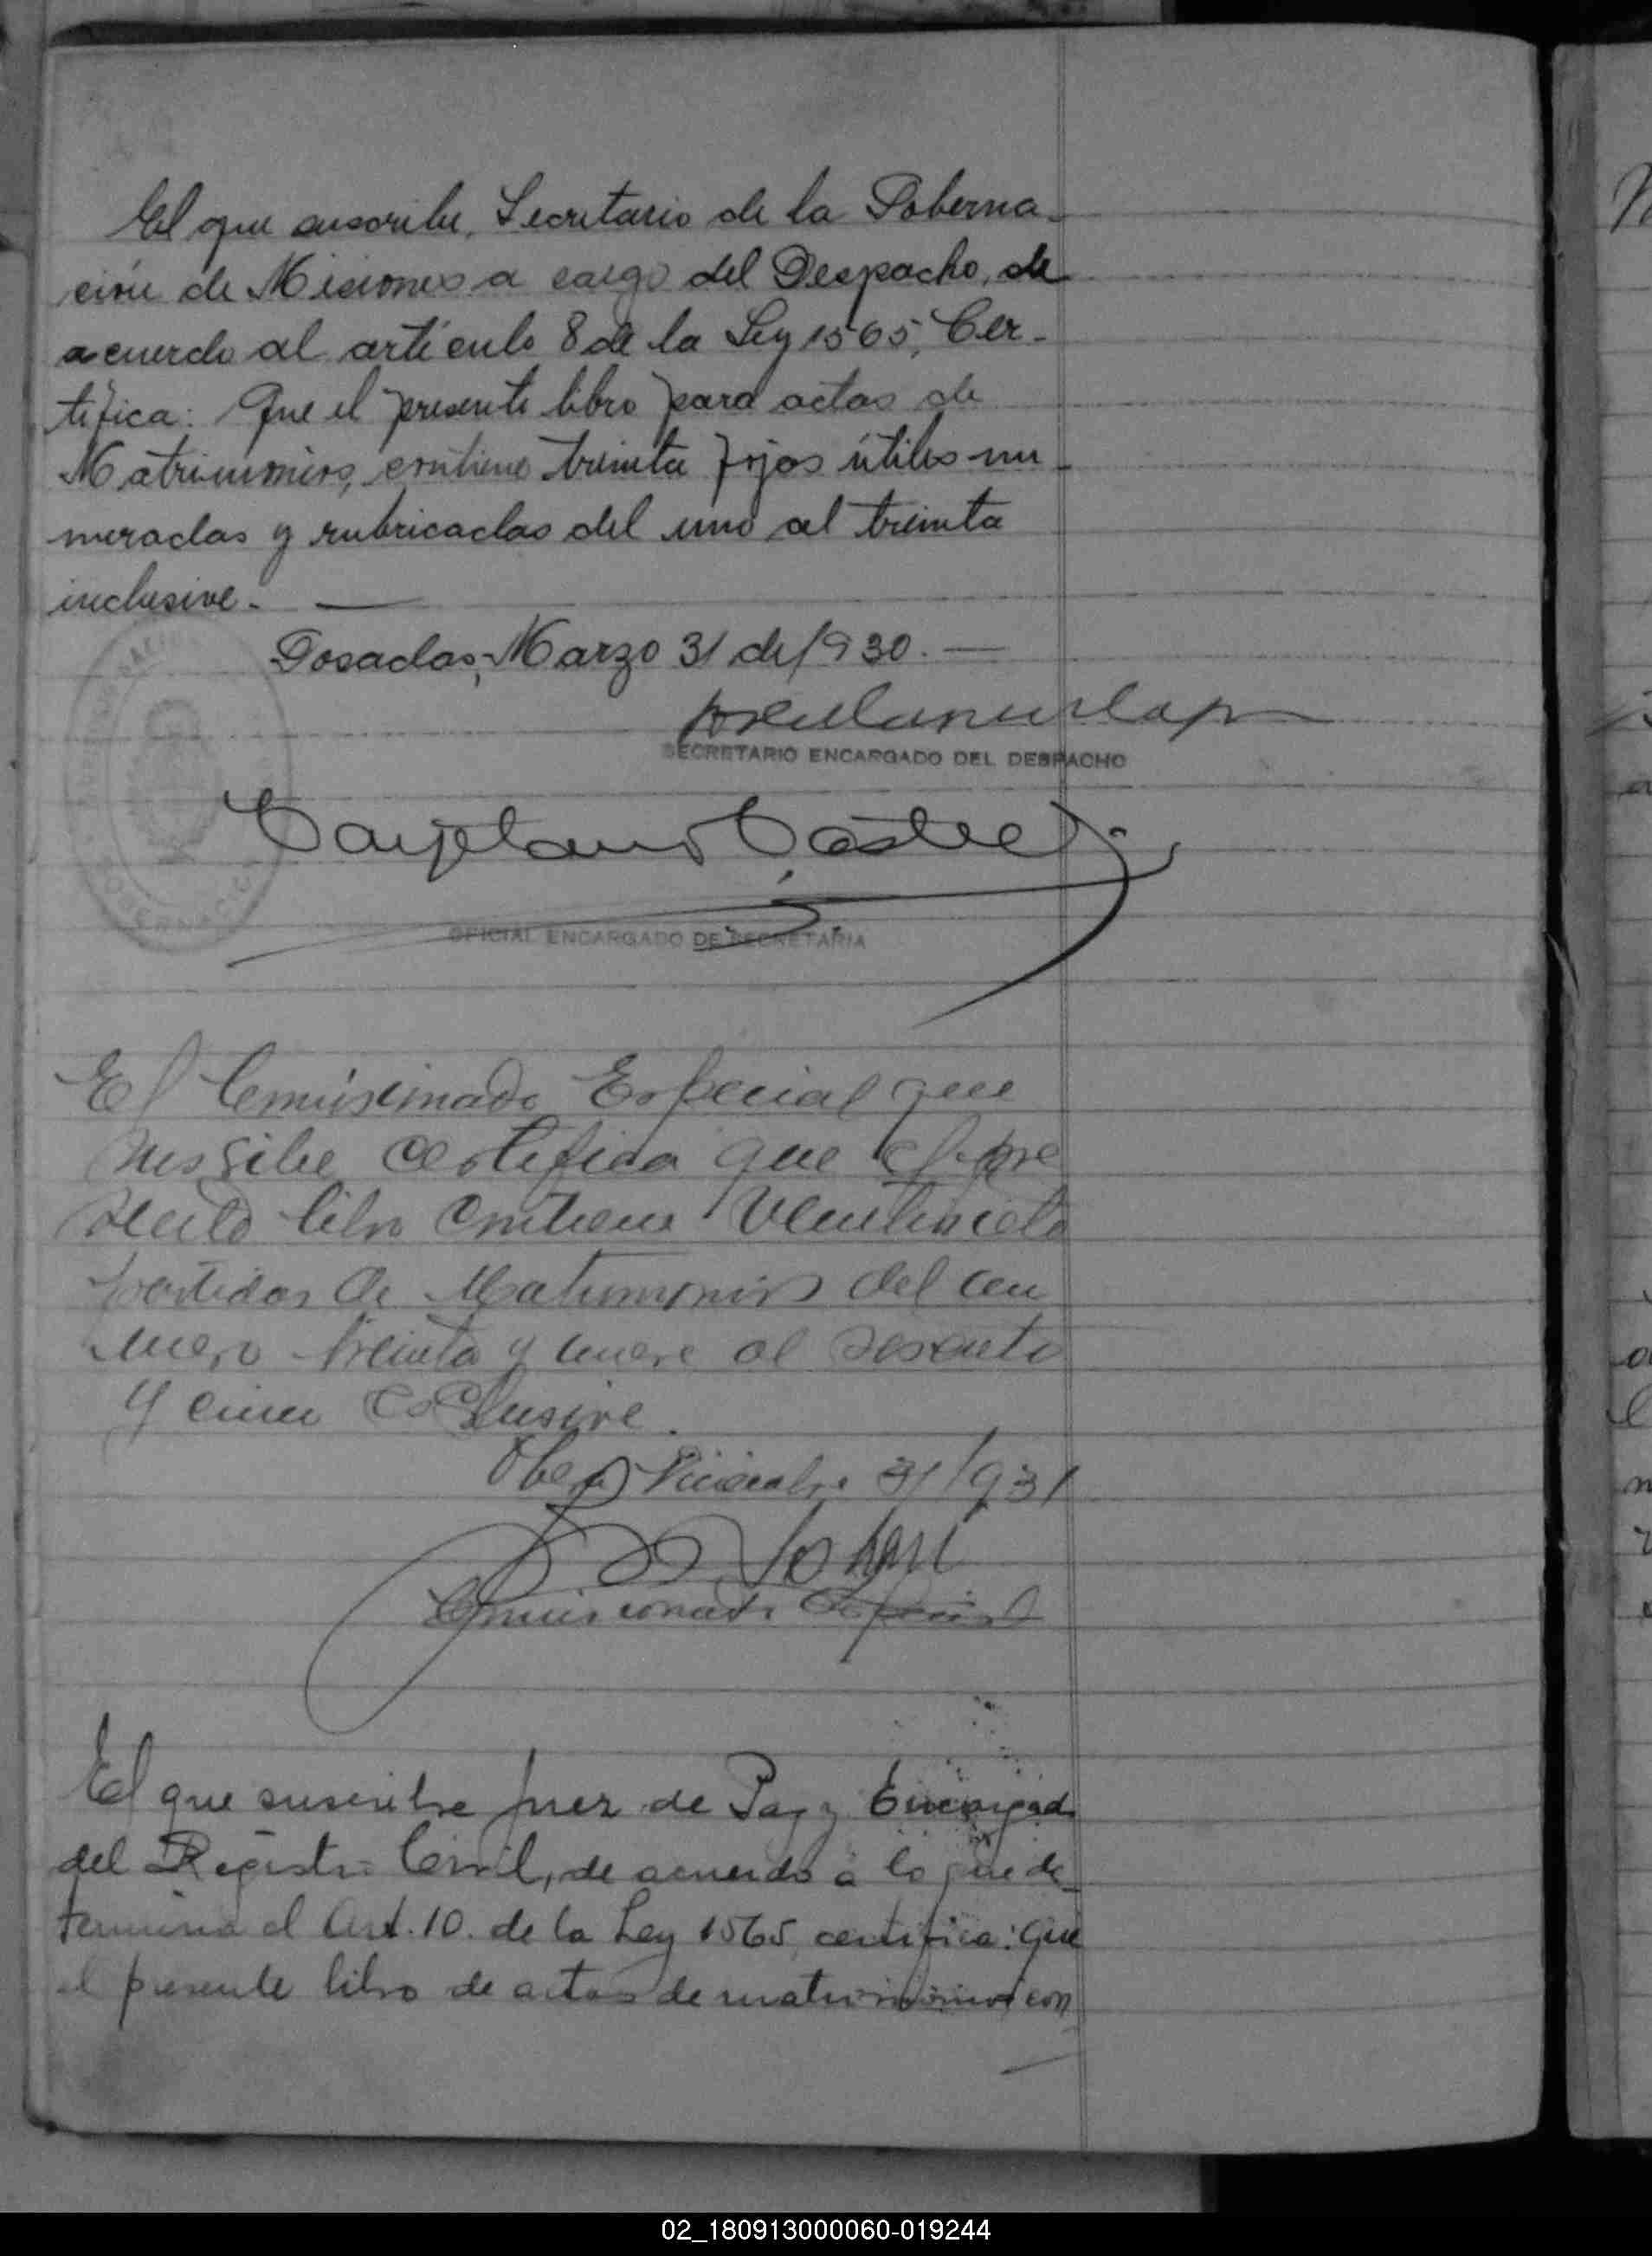 El que suscribe, Secretario de la Goberna-
ción de Misiones a cargo del Despacho, de
acuerdo al artículo 8 de la Ley 1565, Cer-
tifica: Que el presente libro para actas de
Matrimonios, contiene treinta fojas útiles nu-
meradas y rubricadas del uno al treinta
inclusive. —
Posadas, Marzo 31 de 1930. —
SECRETARIO ENCARGADO DEL DESPACHO
Cayetano Castre
OFICIAL ENCARGADO DE SECRETARIA
GOBERNACION
El Comisionado Especial que
suscribe certifica que el pre
sente libro contiene Veintisiete
partidas de Matrimonios del
nuero treinta y nueve al sesenta
y cinco inclusive.
Oberá Diciembre 31/931
Comisionado Especial
El que suscribe Juez de Paz y Encargado
del Registro Civil, de acuerdo a lo que de-
termina el Art. 10. de la Ley 1565, certifica: Que
el presente libro de actas de matrimonios con
02_180913000060-019244